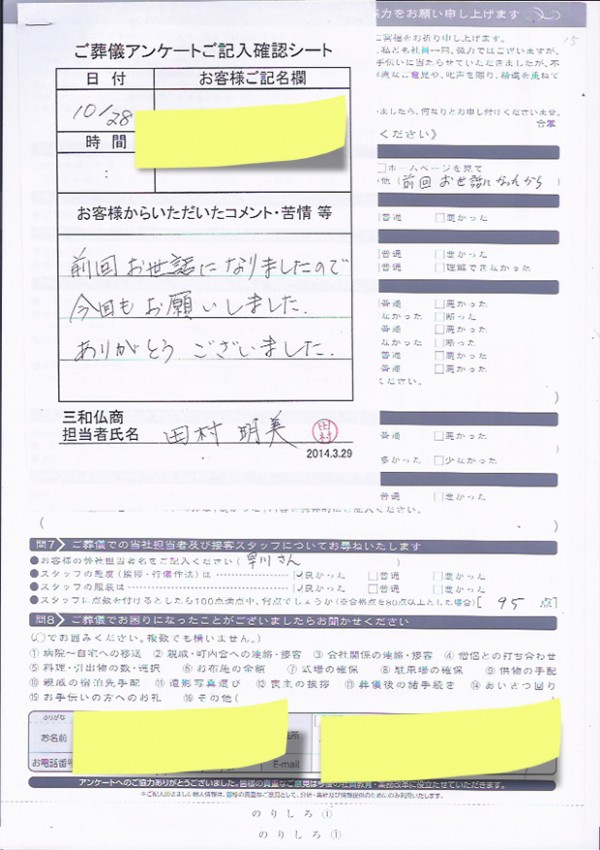 力をお願い申し上げます
ご葬儀アンケートご記入確認シート
日付
お客様ご記名欄
10/28
時間
:
合掌
ください》
ホームページを見て
他（前回お世話になったから）
お客様からいただいたコメント・苦情 等
普通 □悪かった
前回お世話になりましたので
今回もお願いしました.
ありがとうございました.
普通 □悪かった
普通 □理解できなかった
普通 □悪かった
なかった □断った
普通 □悪かった
なかった □断った
普通 □悪かった
普通 □悪かった
ください。
三和仏商
担当者氏名 田村 明美
田村
2014.3.29
普通 □悪かった
多かった □少なかった
普通 □悪かった
問7 ご葬儀での当社担当者及び接客スタッフについてお尋ねいたします
●お客様の弊社担当者名をご記入ください（ 早川さん ）
●スタッフの態度（挨拶・行儀作法）は ☑良かった □普通 □悪かった
●スタッフの服装は ☑良かった □普通 □悪かった
●スタッフに点数を付けるとしたら100点満点中、何点でしょうか（※合格点を80点以上とした場合）[ 95 点]
問8 ご葬儀でお困りになったことがございましたらお聞かせください
（○でお囲みください。複数でも構いません。）
① 病院〜自宅への移送 ② 親戚・町内会への連絡・接客 ③ 会社関係の連絡・接客 ④ 僧侶との打ち合わせ
⑤ 料理・引出物の数・選択 ⑥ お布施の金額 ⑦ 式場の確保 ⑧ 駐車場の確保 ⑨ 供物の手配
⑩ 親戚の宿泊先手配 ⑪ 遺影写真選び ⑫ 喪主の挨拶 ⑬ 葬儀後の諸手続き ⑭ あいさつ回り
⑮ お手伝いの方へのお礼 ⑯ その他（ ）
ふりがな
お名前
お電話番号
E-mail
アンケートへのご協力ありがとうございました。皆様の貴重なご意見は今後の社員教育・業務改革に役立たせていただきます。
のりしろ①
のりしろ①